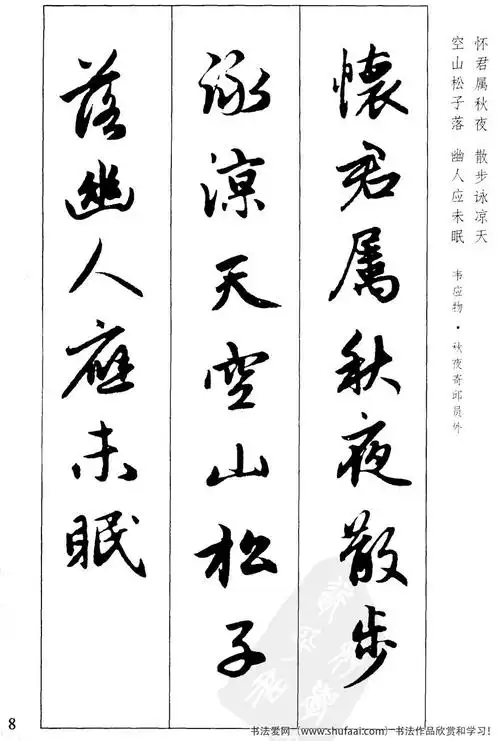 怀君属秋夜 散步咏凉天
空山松子落 幽人应未眠
韦应物·秋夜寄邱员外
懷君屬秋夜散步
詠涼天空山松子
落幽人應未眠
8
书法爱网（www.shufaai.com）书法作品欣赏和学习！